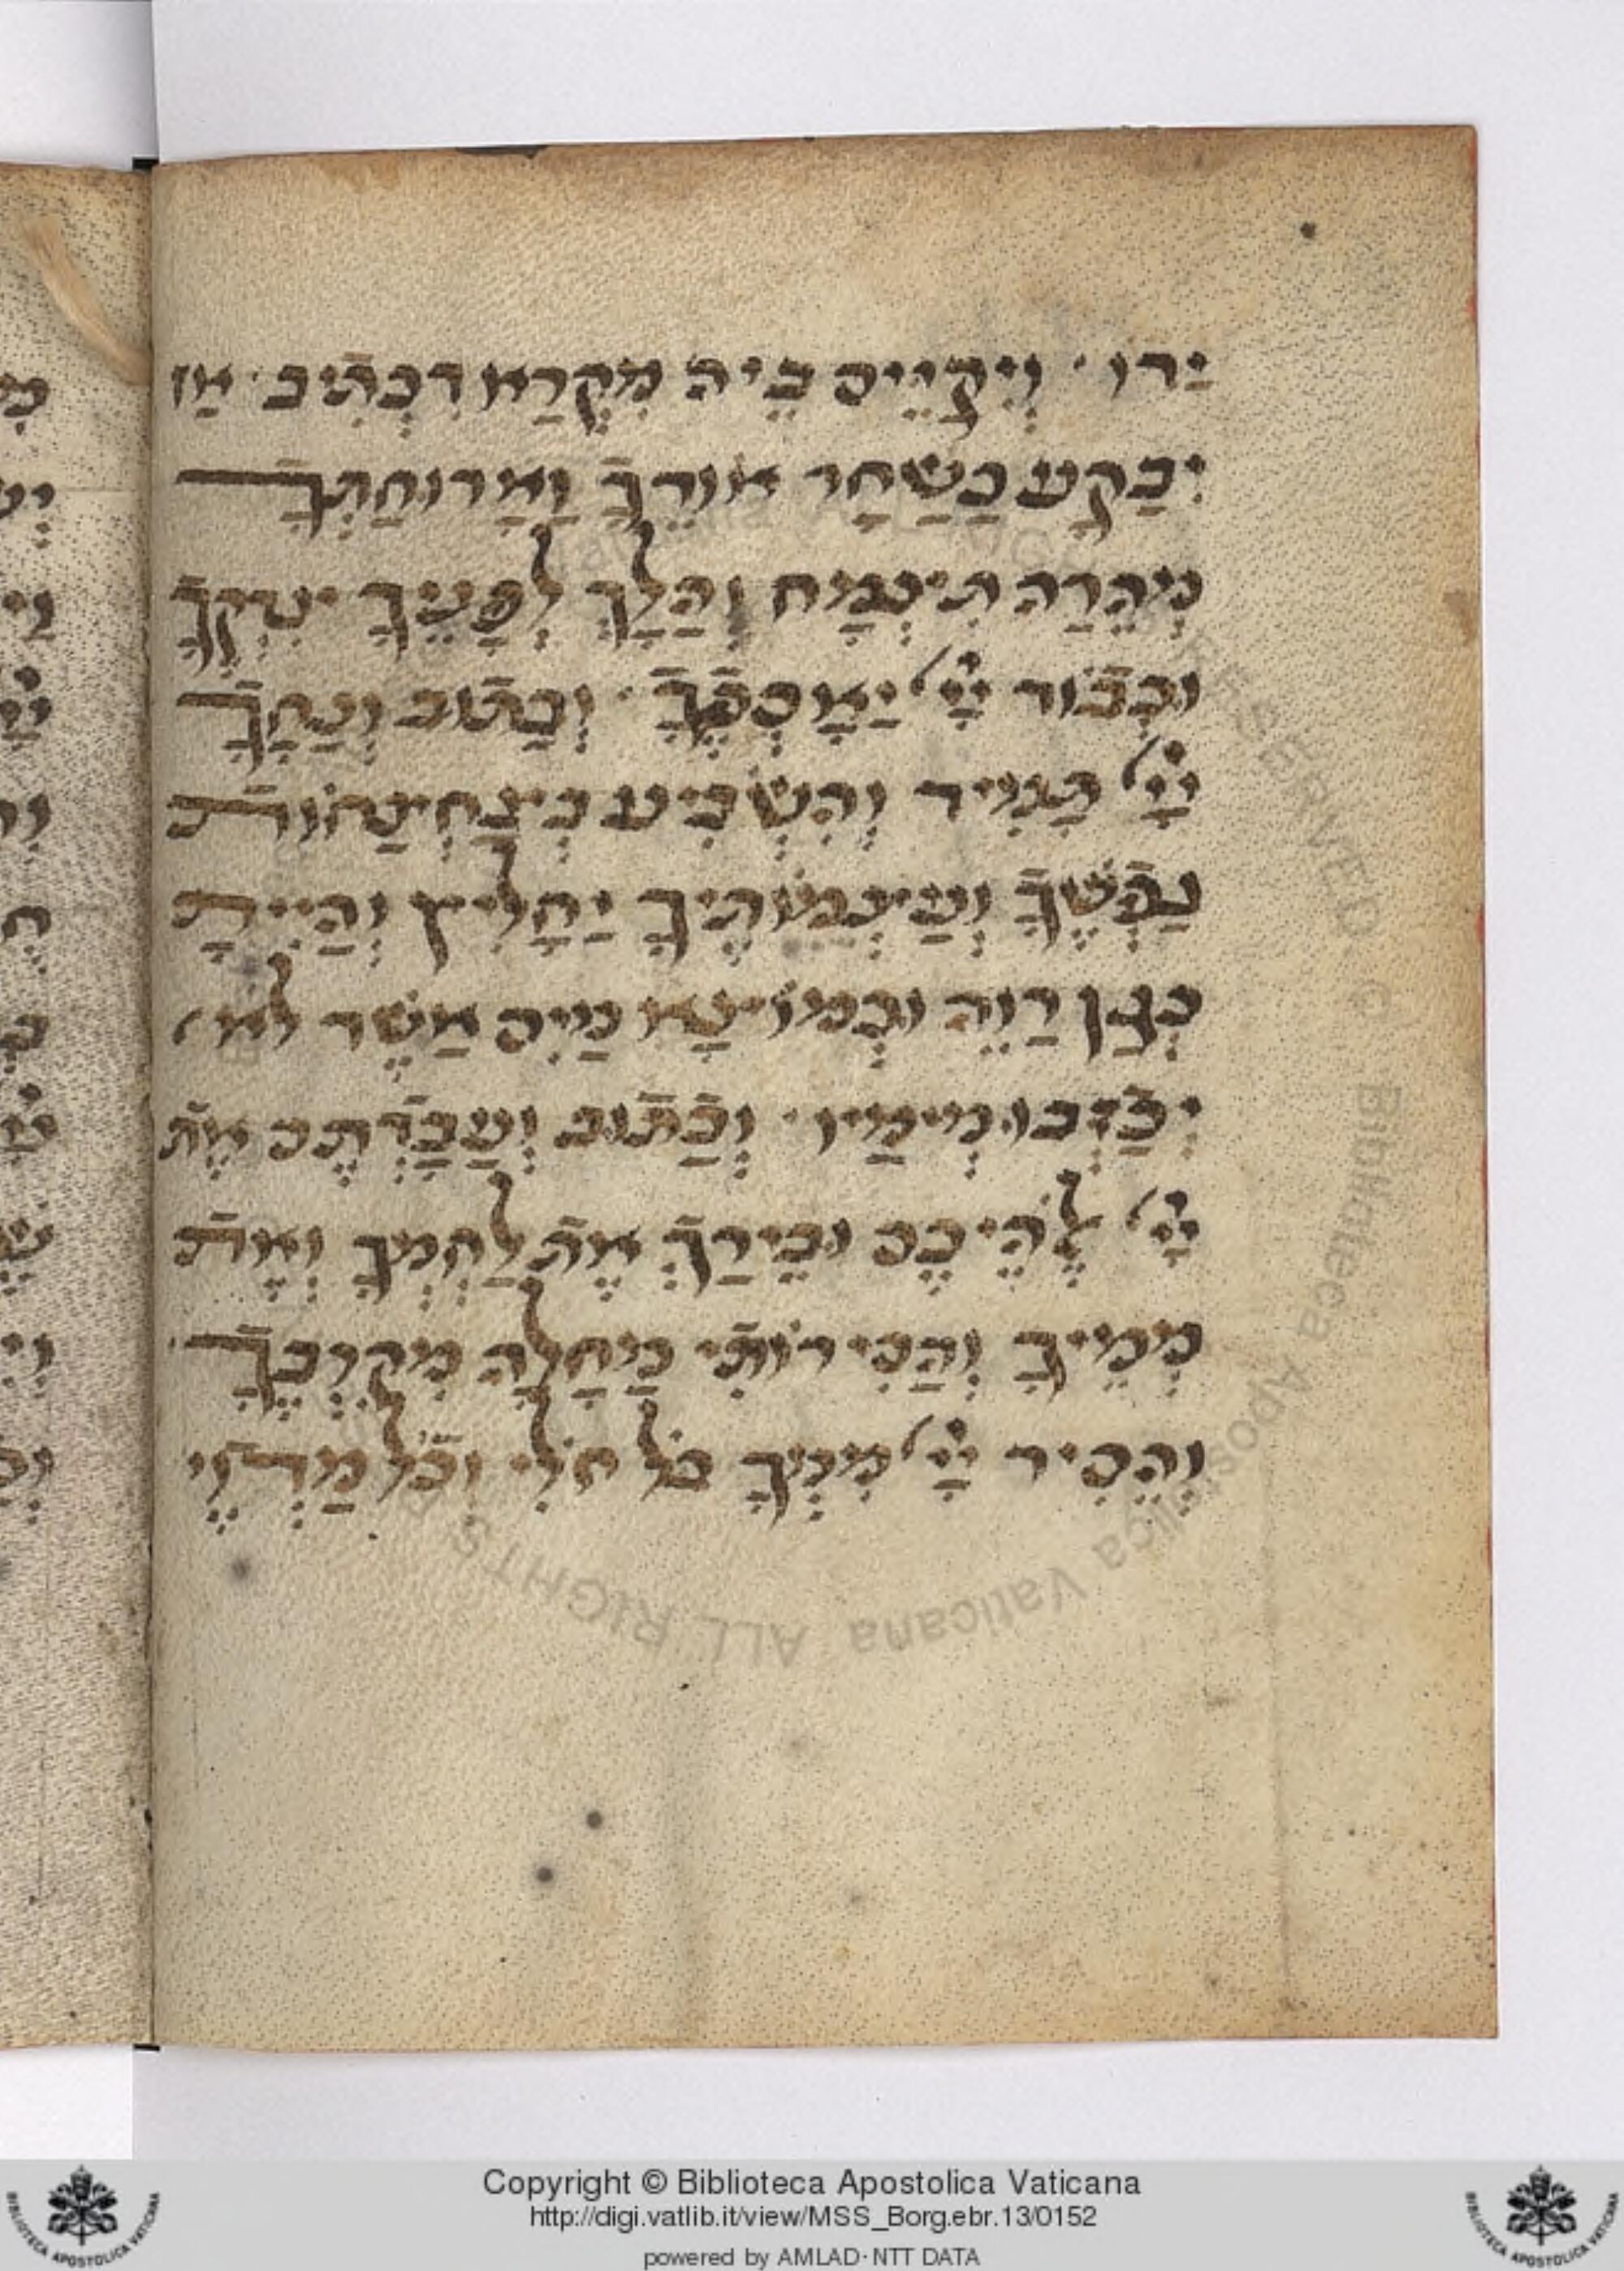 יַרו · וְיִקָיֵים בֵיה מִקְרַא דִכְתִיב · אַז
יִבָקַע כַשַחַר אורֵךָ וַאֲרוּחָתְךָ
מְהֵרַה תִיצְמָח וְהָלַךְ לְפָנֶיךָ יצִדְקֶךָ
וכְבוד יָי יַאַסְפֶךָ · וְכָתוב וְנָחֲךָ
יָי תָמִיד וְהִשְבִיע בְצַחְצַחות
נַפְשֶךָ וְעַצְמותֶיךָ יַחֲלִיץ וְהַיִיתָ
כְגַן רָוֶה וכְמוצָא מַיִם אֲשֶר לא
יכַזְבו מימַיו · וְכָתוב וַעֲבַדְתֶם אֶת
יָי לֶהֵיכֶם ובֵירַךְ אֶת לַחְמְךָ וְאֶת
מֵמֶיךָ וַהֲסִירותִי מַחֲלָה מִקִרְבֶךָ
וְהֵסִיר יָי מִמְךָ כל חלִי וְכל מַדְוֶי
Copyright © Biblioteca Apostolica Vaticana
http://digi.vatlib.it/view/MSS_Borg.ebr.13/0152
powered by AMLAD·NTT DATA